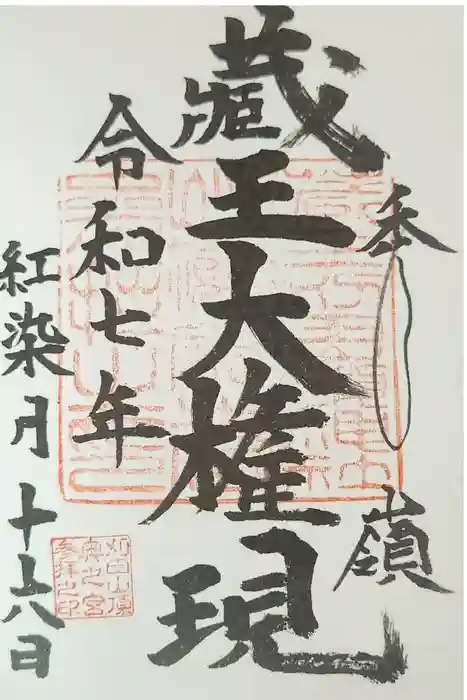 奉嶺
蔵王大権現
令和七年
紅染月十六日
刈田山頂
奥之宮
参拝之印